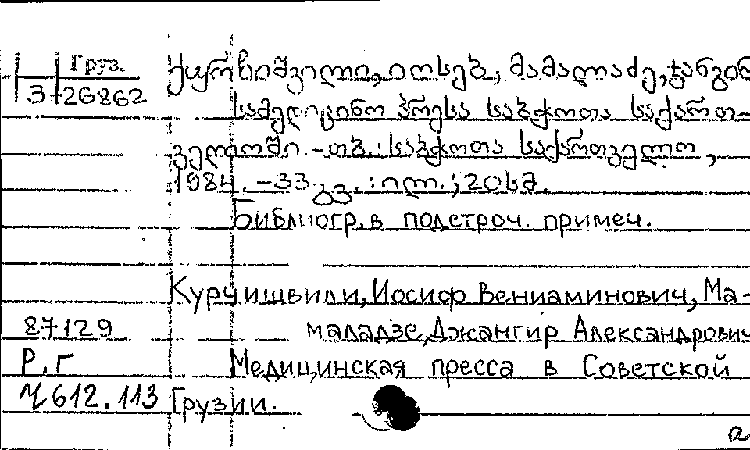 Груз.
3-26862
ყურჩიშვილი, იოსებ, მამალაძე, ჯანგირ
სამედიცინო პრესა საბჭოთა საქართ-
ველოში. - თბ.: საბჭოთა საქართველო,
1984. - 33 გვ. : ილ. ; 20სმ.
Библиогр. в подстроч. примеч.
Курчишвили, Иосиф Вениаминович, Ма-
87129 маладзе, Джангир Александрович
Р.г Медицинская пресса в Советской
612.113 Грузии.
а